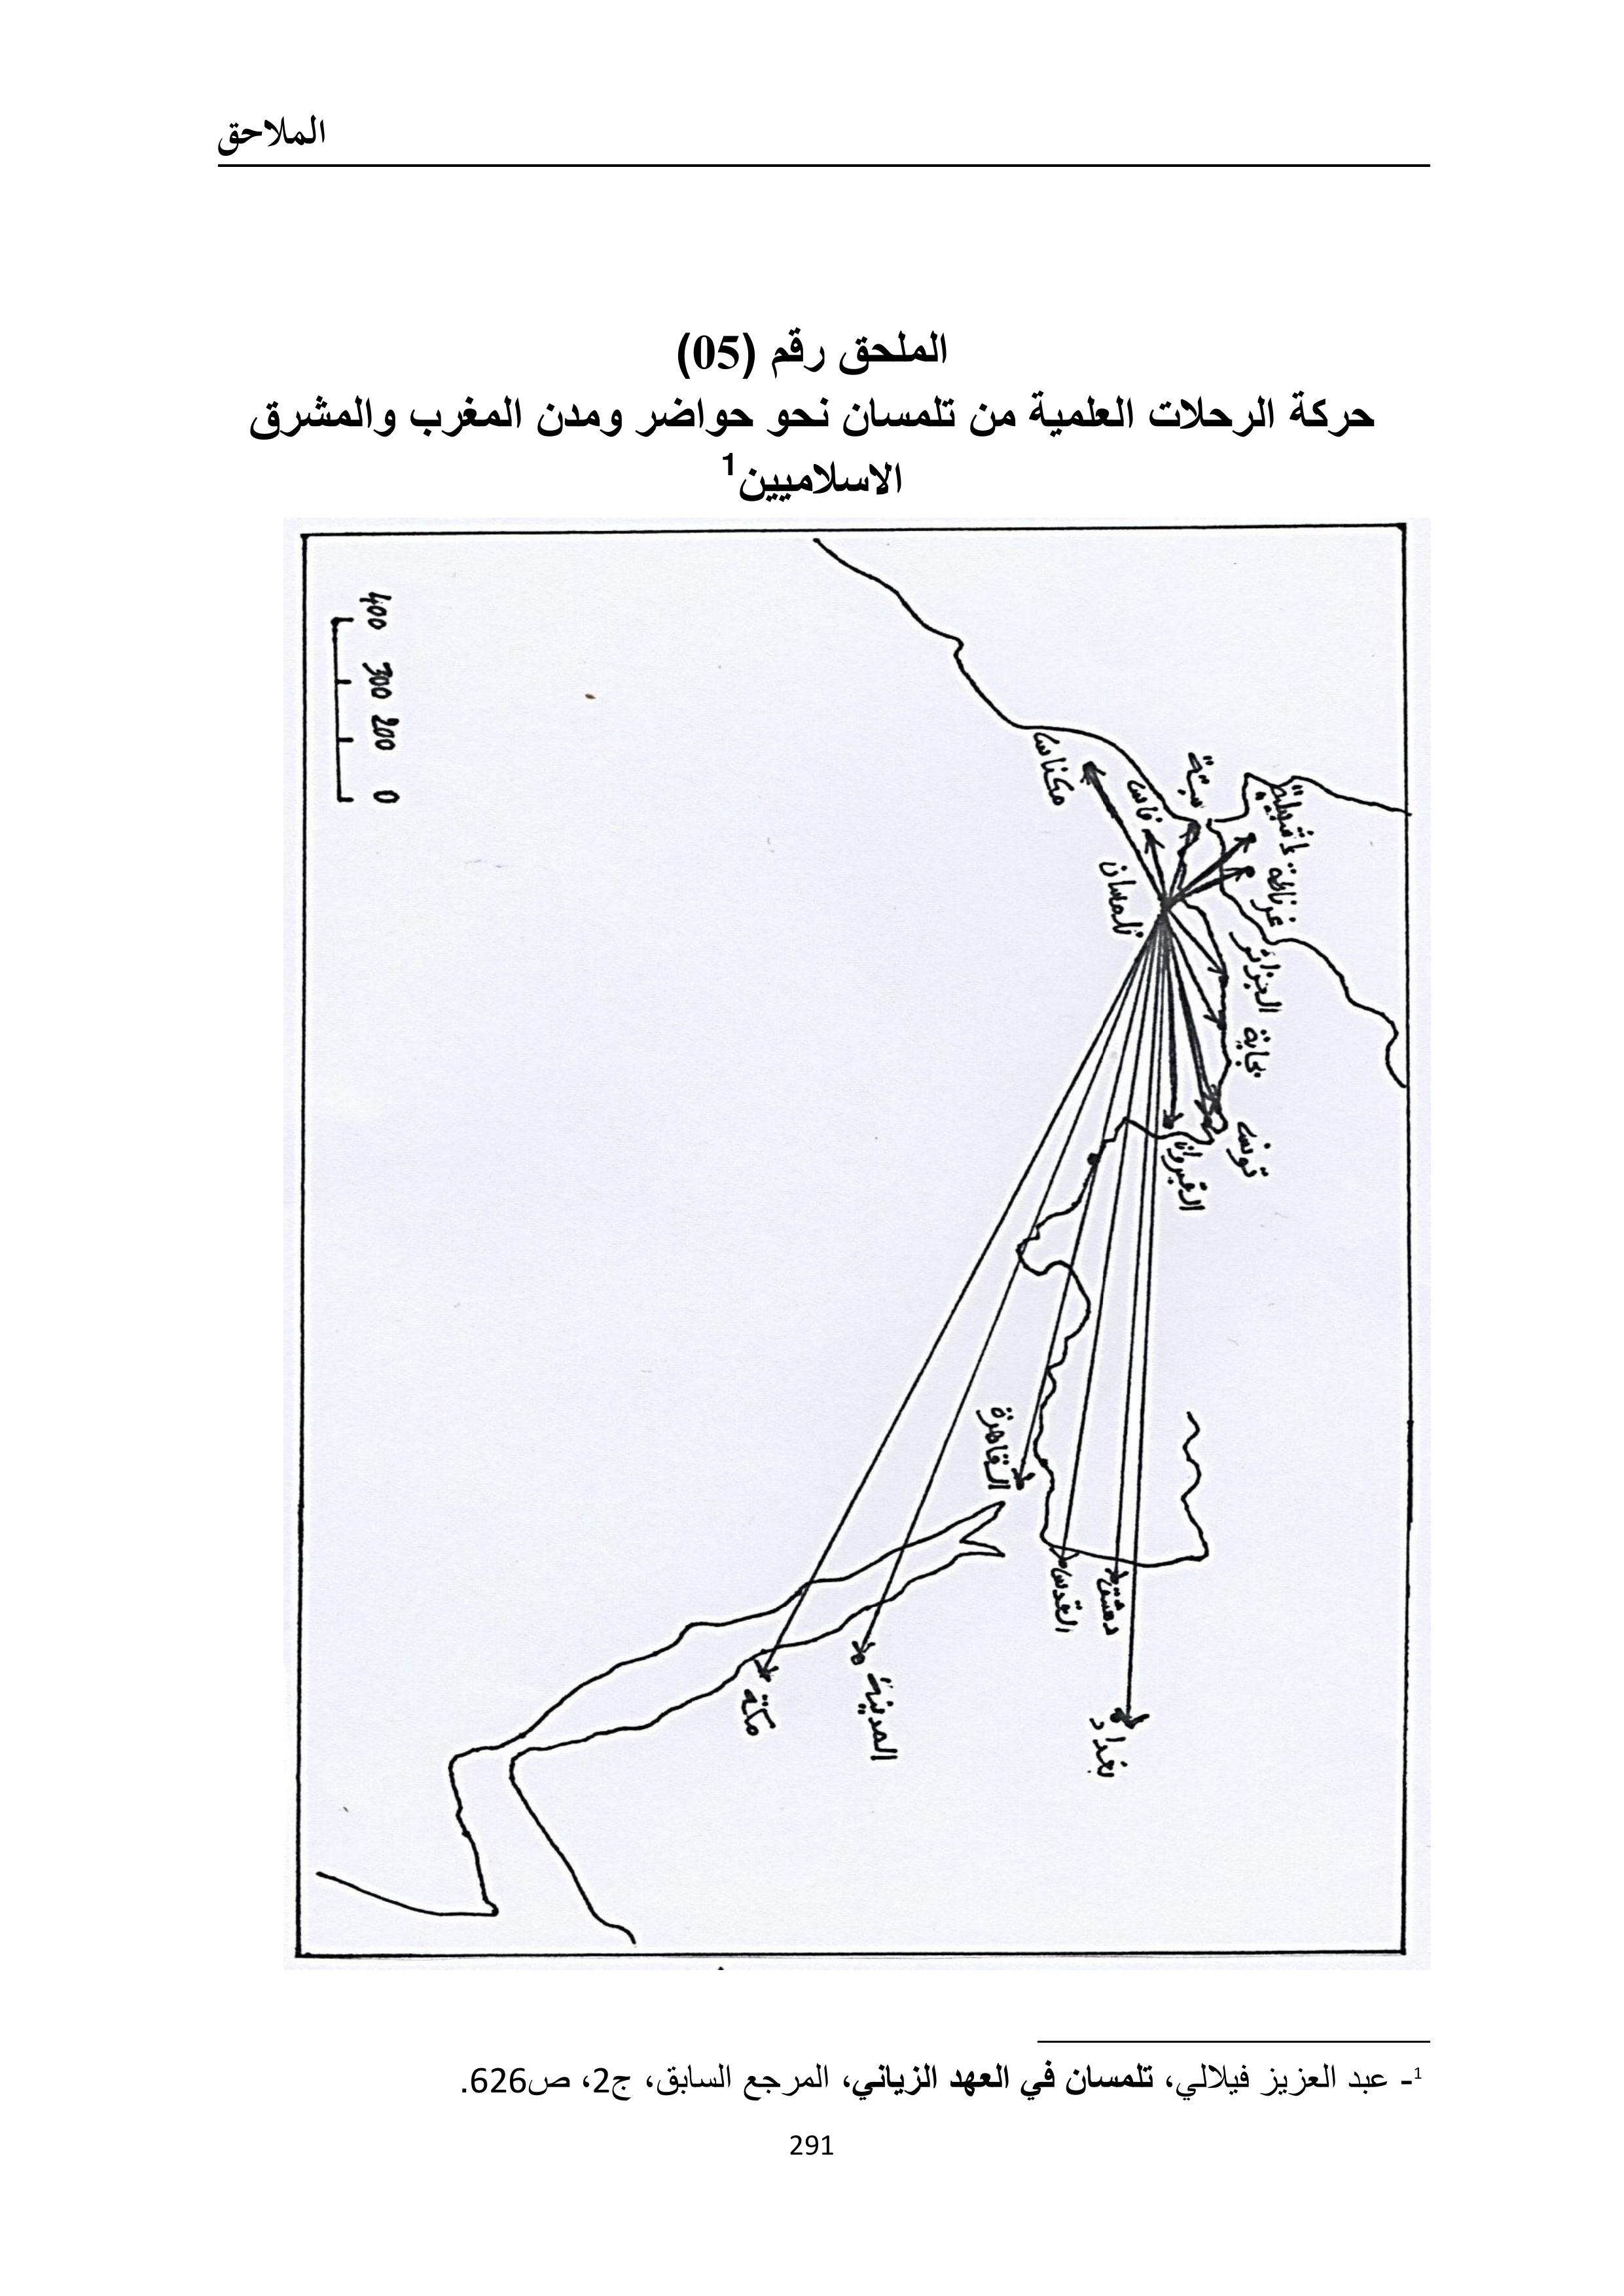 الملاحق
الملحق رقم (05)
حركة الرحلات العلمية من تلمسان نحو حواضر ومدن المغرب والمشرق
الاسلاميين1
400 300 200 0
مكناس
فاس
سبتة
اشبيلية
غرناطة
تلمسان
الجزائر
بجاية
تونس
القيروان
القاهرة
القدس
دمشق
بغداد
المدينة
مكة
1- عبد العزيز فيلالي، تلمسان في العهد الزياني، المرجع السابق، ج2، ص626.
291